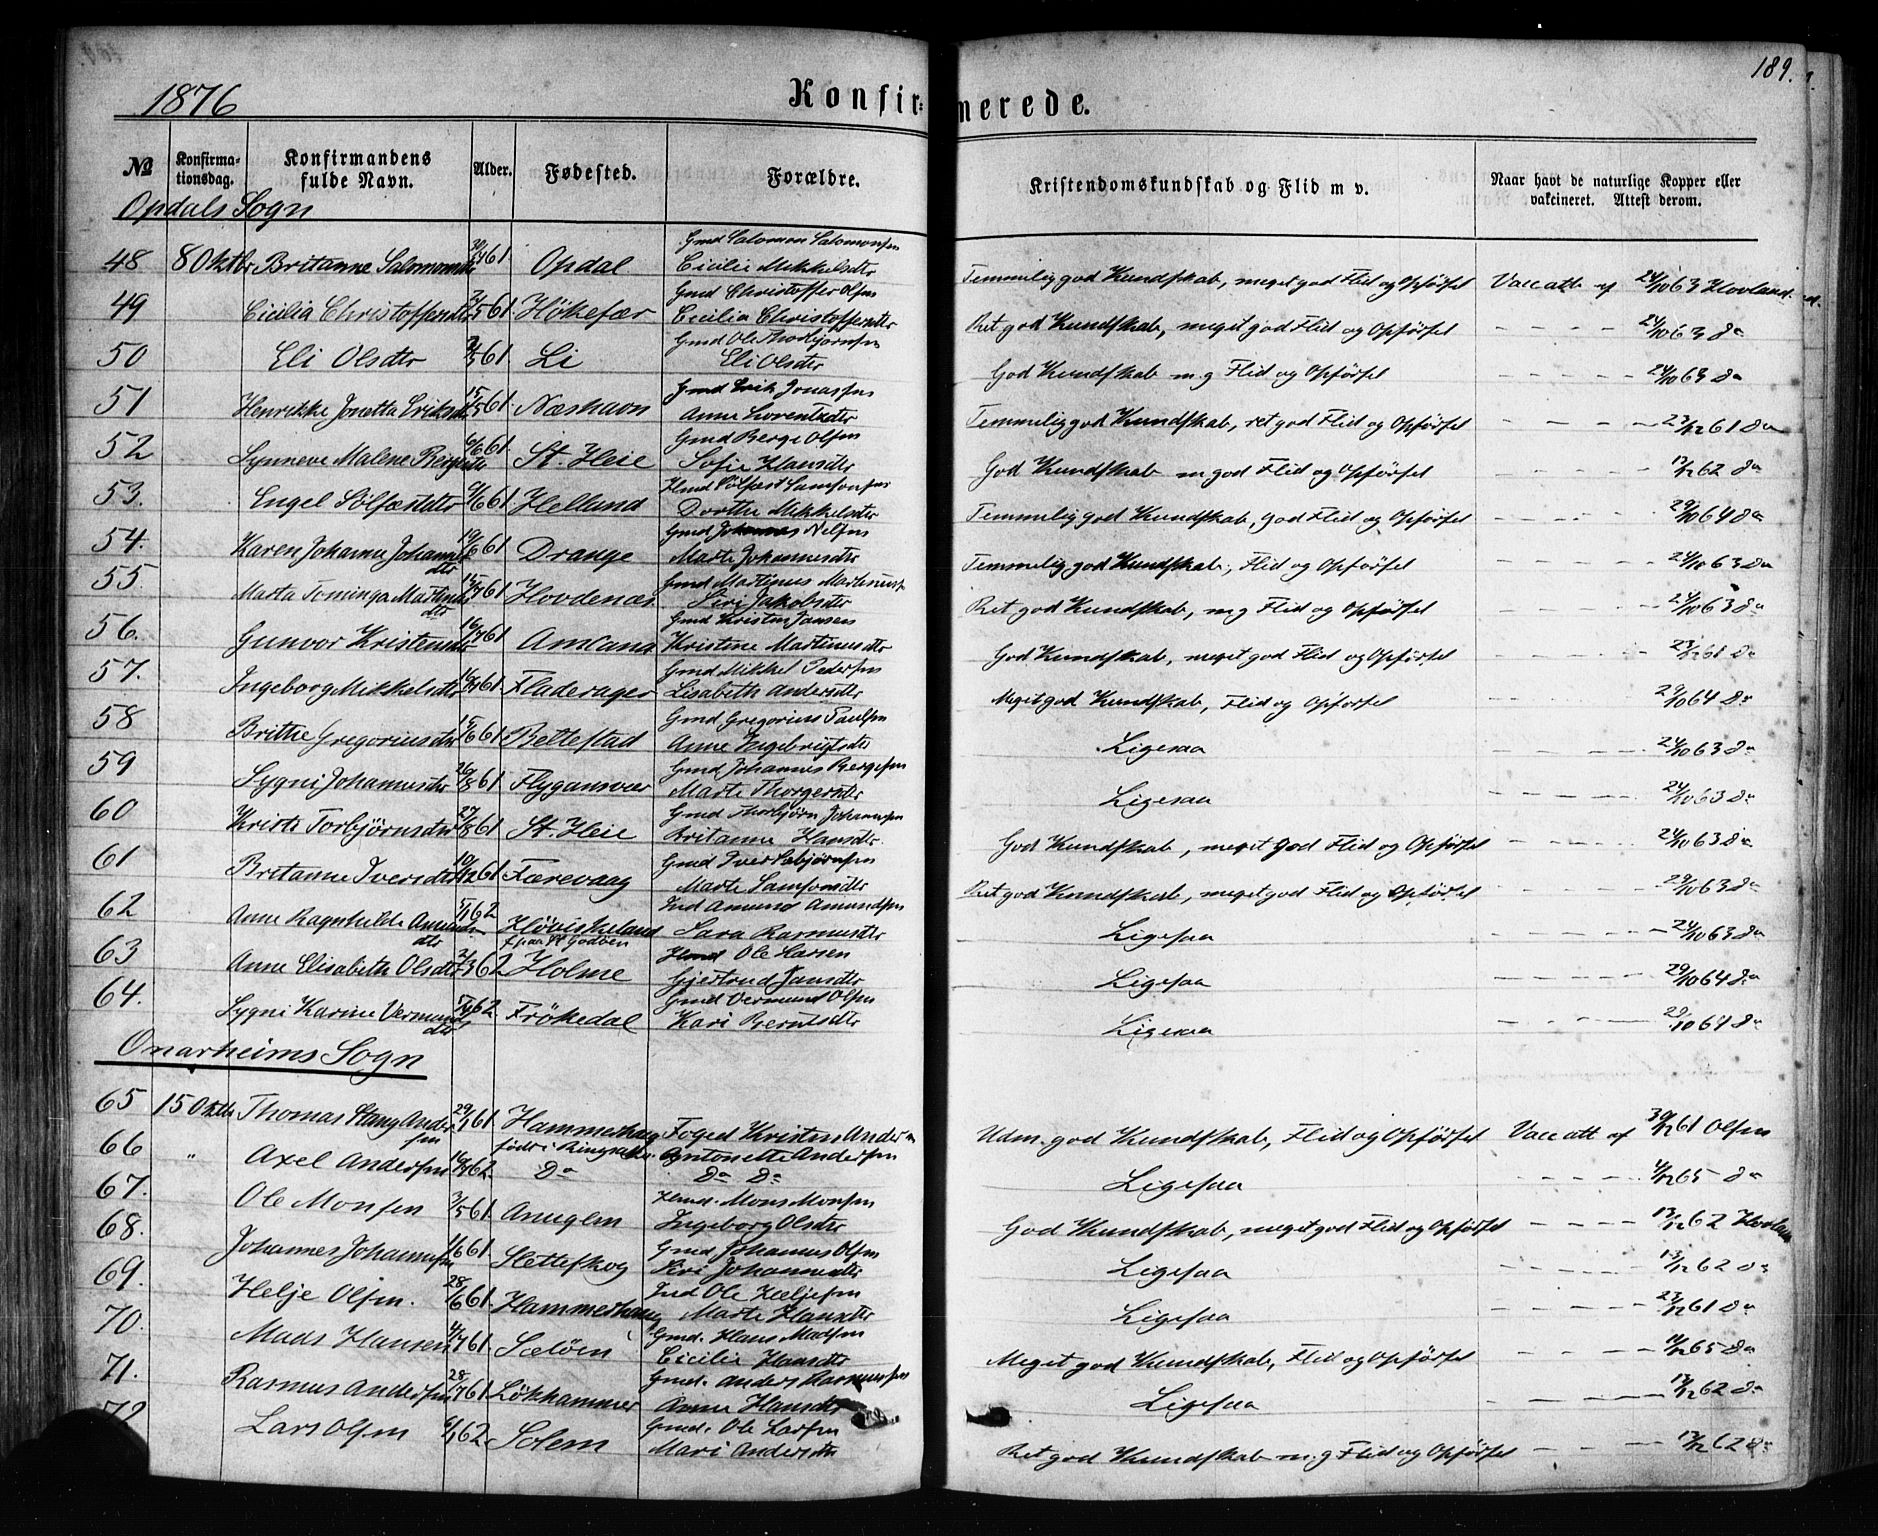 189.
1876
Konfirmerede.
№ Konfirma-tionsdag. Konfirmandens fulde Navn. Alder. Fødested. Forældre. Kristendomskundskab og Flid m v. Naar havt de naturlige Kopper eller vakcineret. Attest derom.
Opdals Sogn
Gmd Salomon Salomonsen
48 8 Oktbr Britanne Salomonsdtr 61 Opdal Cicilie Mikkelsdtr Temmelig god Kundskab, meget god Flid og Opførsel Vacc att af 24/10 63 Hovland
Gmd Christoffer Olsen
49 Cicilia Christoffersdtr 61. Høkefær Cecilia Christoffersdtr Ret god Kundskab, meget god Flid og Opførsel 24/10 63 do
Gmd Ole Thorbjørnsen
50 Eli Olsdtr 61. Li Eli Olsdtr God Kundskab m.g Flid og Opførsel 24/10 63 do
Gmd Erik Jonassen
51 Henrikke Jonetta Eriksdtr 15/5 61. Næshavn Anne Lorentsdtr Temmelig god Kundskab, ret god Flid og Opførsel 23/12 61 do
Gmd Berge Olsen
52 Synneve Malene Bergesdtr 6/6 61. St. Heie Sofie Hansdtr God Kundskab m god Flid og Opførsel 13/12 62 do
Hmd Sølfæst Samsonsen
53. Engel Sølfæstdtr 61 Helland Dorthe Mikkelsdtr Temmelig god Kundskab, god Flid og Opførsel 29/10 64 do
Gmd Johannes Nelsen
54. Karen Johanna Johannesdtr 19/6 61 Drange Marte Johannesdtr Temmelig god Kundskab, Flid og Opførsel 24/10 63 do
Gmd Martinus Martinus
55. Marta Tominga Martinusdtr 15/7 61 Hovdenæs Siri Jakobsdtr Ret god Kundskab, m.g Flid og Opførsel 24/10 63 do
Gmd Kristen Jansen
56. Gunvor Kristensdtr 16/7 61 Amland Kristine Martinusdtr God Kundskab, meget god Flid og Opførsel 23/12 61 do
Gmd Mikkel Pedersen
57. Ingeborg Mikkelsdtr 61. Fladerager Lisabeth Andersdtr Meget god Kundskab, Flid og Opførsel 29/10 64 do
Gmd Gregorius Paulsen
58 Brithe Gregoriusdtr 61 Bettestad Anne Ingebrigtsdtr Ligesaa 24/10 63 do
Gmd Johannes Bergesen
59 Sygni Johannesdtr 26/8 61 Flygansvær Marte Thorgersdtr Ligesaa 24/10 63 do
Gmd Thorbjørn Johannesen
60 Kristi Torbjørnsdtr 27/8 61 St. Heie Britanne Hansdtr. God Kundskab, meget god Flid og Opførsel 24/10 63 do
61 Britanne Iversdtr 10/12 61 Færevaag Marte Samsonsdtr Ret god Kundskab, meget god Flid og Opførsel 63 do
Ind Amund Amundsen
62 Anne Ragnhilde Amundsdtr 62 Sara Rasmusdtr Ligesaa 24/10 63 do
Hmd Ole Larsen
63 Anne Elisabeth Olsdtr 62 Holme Gjertrud Jansdtr Ligesaa 29/10 64 do
Gmd Vermund Olsen
64. Sygni Karine Vermundsdtr 62. Frøkedal Kari Berntsdtr Ligesaa 29/10 64 do
Onarheims Sogn
65 15 Oktbr Thomas Stang Andersen 29/1 61 Hammerhaug født i Foged Kristen Andersen Antonette Andersen Udm. god Kundskab, Flid og Opførsel Vacc att af 30/12 61 Olsen
66 " Axel Andersen 62. Do Do Do Ligesaa 4/12 65 do
Hmd. Mons Monsen
67. Ole Monsen 3/5 61. Anuglen Ingeborg Olsdtr God Kundskab, meget god Flid og Opførsel 13/12 62 Hovland
Gmd. Johannes Olsen
68. Johannes Johannesen 61. Sletteskog Siri Johannesdtr Ligesaa 13/12 62 do
Ind Ole Heljesen
69. Helje Olsen. 28/6 61. Hammerhaug Marte Hansdtr Ligesaa 23/12 61 do
Gmd. Hans Madsen
70. Mads Hansen 61. Sæløen Cicilie Hansdtr Meget god Kundskab, Flid og Opførsel 65 do
Gmd. Anders Rasmussen
71. Rasmus Andersen 28/7 61. Løkhammer Anne Hansdtr Ligesaa 13/12 62 do
Gmd. Ole Larsen
72 Lars Olsen 62. Solem Mari Andersdtr Ret god Kundskab m.g Flid og Opførsel 13/12 62 do